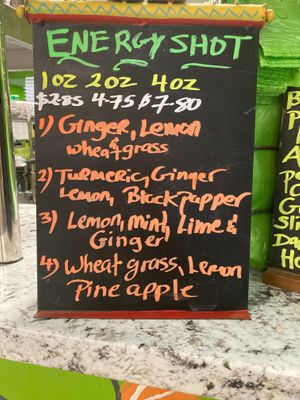 ENERGY SHOT
1oz 2oz 4oz
$2.85 4.75 $7.80
1) Ginger, Lemon
& wheatgrass
2) Turmeric, Ginger
Lemon, Blackpapper
3) Lemon, Mint, Lime &
Ginger
4) Wheatgrass, Lemon
Pineapple